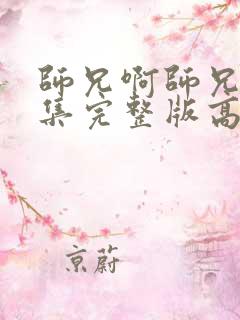 師兄啊師兄
集完整版高
京蔚